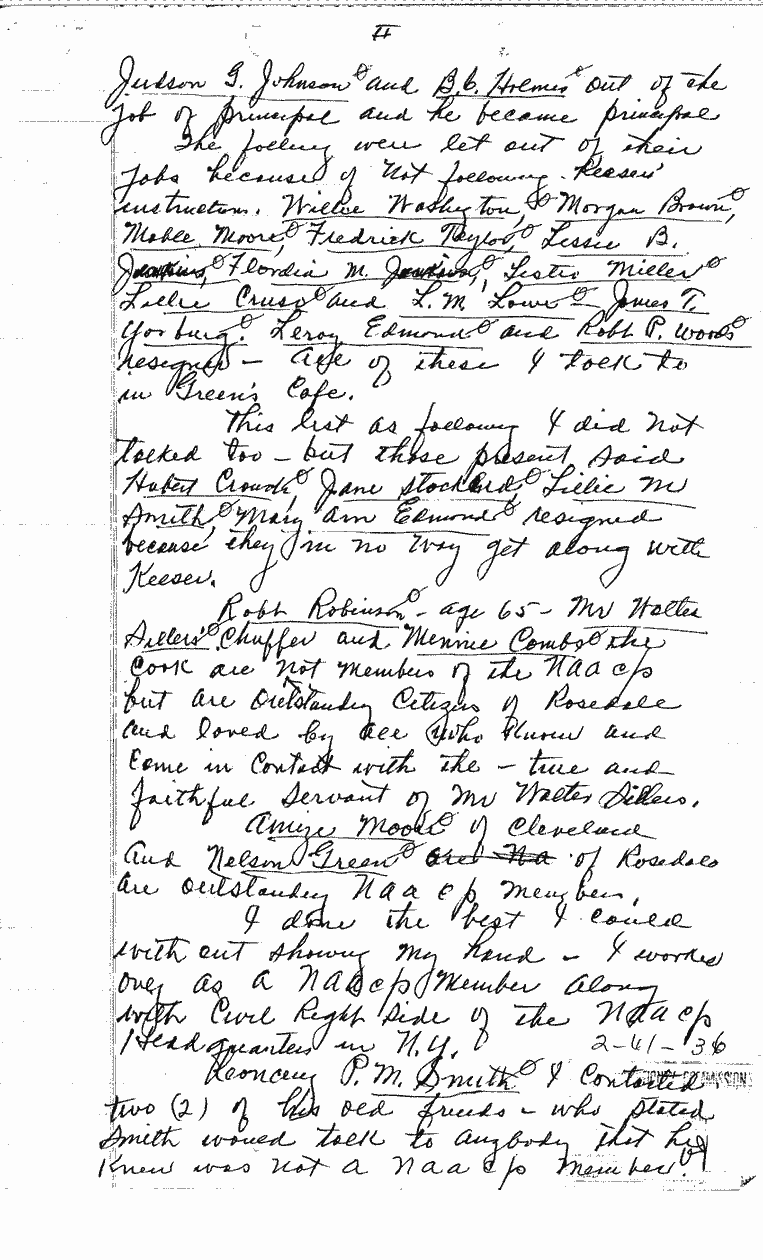 II
Judson G. Johnson and B.C. Holmes out of the
job of principal and he became principal
The folling were let out of their
Jobs because of not following Keesers'
instruction. Willie Washington, Morgan Brown,
Mable Moore, Fredrick Taylor, Lessie B.
Jenkins, Flordia M. Jenkins, Lester Miller
Lillie Cruso and L.M. Lowe - James T.
Yorburg. Leroy Edmond and Robt P. Woods
resigned - All of these I talk to
in Green's Cafe.
This list as following I did not
talked too - but those present said
Hubert Crouch, Jane Stockard, Lillie M
Smith, Mary Ann Edmond resigned
because they in no way get along with
Keeser.
Robt Robinson - age 65 - Mr Walter
Sillers' Chuffer and Mennie Combs the
Cook are not members of the NAACP
but are outstanding Citizens of Rosedale
and loved by all who know and
come in contact with the - true and
faithful servant of Mr Walter Sillers.
Amize Moore of Cleveland
and Nelson Green are Na of Rosedale
are outstanding NAACP members.
I done the best I could
with out showing my hand - I worked
only as a NAACP Member along
with Civil Right side of the NAACP
Headquarters in N.Y. 2-41-36
Keonceng P.M. Smith I contacted
two (2) of his old friends - who stated
Smith would talk to anybody that he
knew was not a NAACP member.